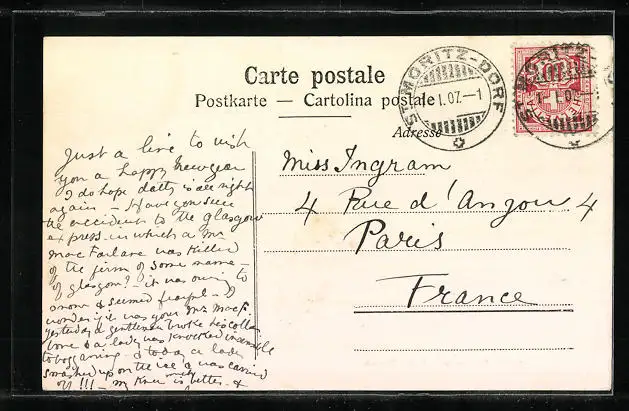 Carte postale
Postkarte — Cartolina postale
Adresse
ST MORITZ-DORF
I.07.—1
Just a line to wish
you a happy New year
I do hope dotty is all right
again — Have you seen
the accident to the Glasgow
express in which a Mr
MacFarlane was killed
of the firm of some name —
of Glasgow? — it was owing to
snow & seemed — I
wonder if it was your Mr. MacF.
yesterday a gentleman broke his collar
bone & a lady was knocked insensible
tobogganing & today a lady
smashed up on the ice & was carried
off !!! — my knee is better &
Miss Ingram
4 Rue d'Anjou 4
Paris
France